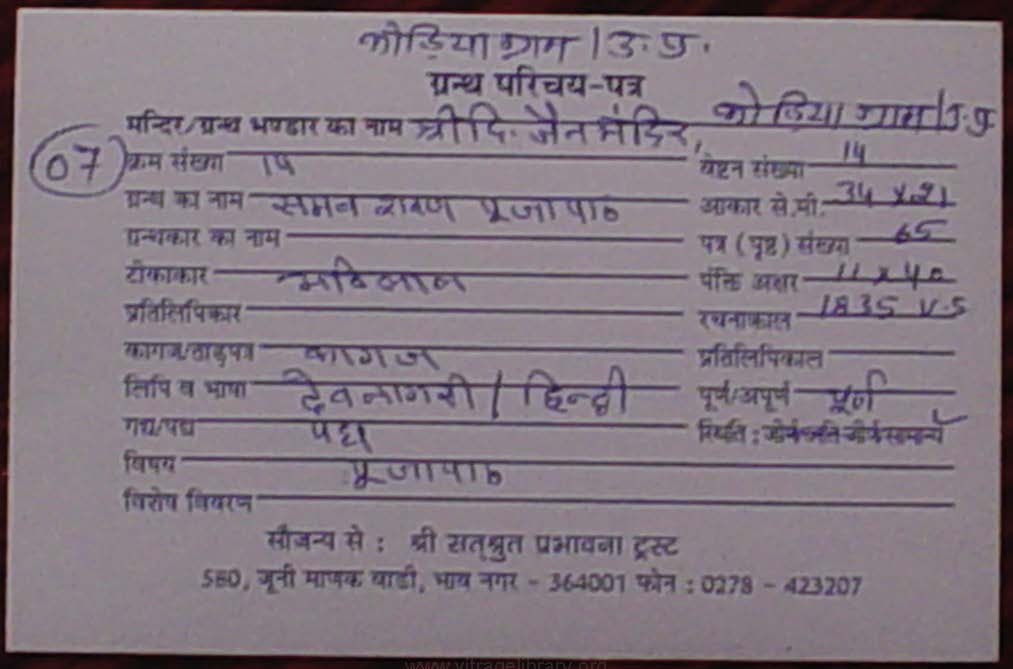 कोडिया ग्राम / उ. प्र.
ग्रन्थ परिचय-पत्र
मन्दिर/ग्रन्थ भण्डार का नाम श्री दि. जैन मंदिर, कोडिया ग्राम / उ.प्र
07 क्रम संख्या 14 वेष्टन संख्या 14
ग्रन्थ का नाम समव शरण पूजा पाठ आकार से.मी. 34 x 21
ग्रन्थकार का नाम पत्र (पृष्ठ) संख्या 65
टीकाकार पंक्ति अक्षर 11 x 40
प्रतिलिपिकार रचनाकाल 1835 V.S
कागज/ताड़पत्र कागज प्रतिलिपिकाल
लिपि व भाषा देवनागरी / हिन्दी पूर्ण/अपूर्ण पूर्ण
गद्य/पद्य पद्य स्थिति : जीर्ण अति जीर्ण सामान्य
विषय पूजा पाठ
विशेष विवरण
सौजन्य से : श्री सत्श्रुत प्रभावना ट्रस्ट
580, जूनी माणक वाडी, भाव नगर - 364001 फोन : 0278 - 423207
www.vitragelibrary.org